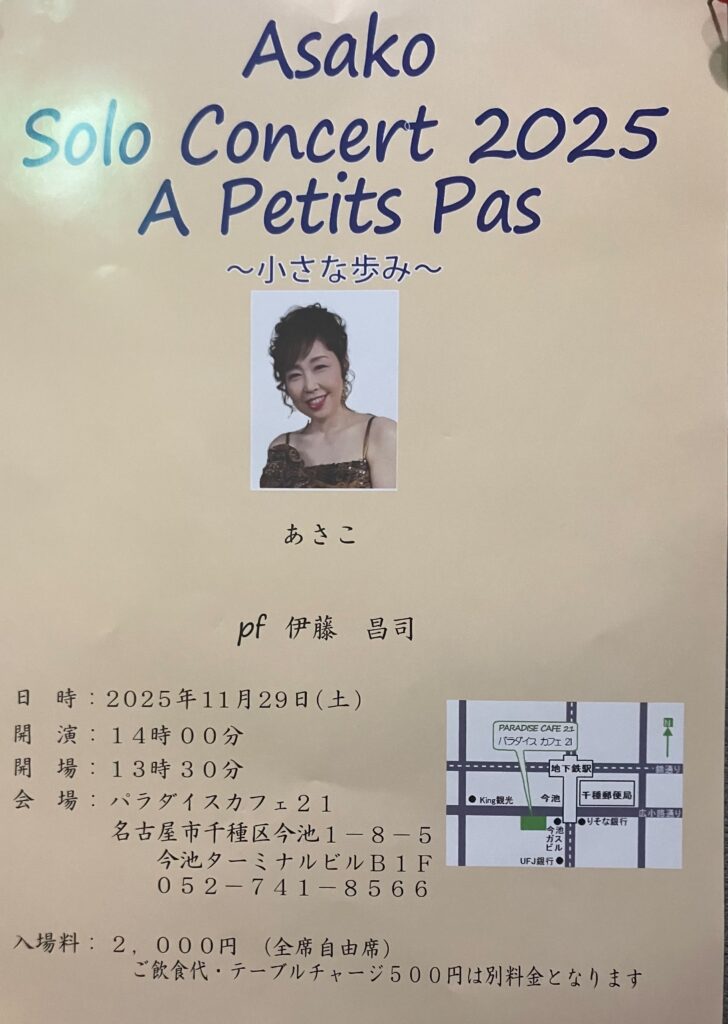 Asako
Solo Concert 2025
A Petits Pas
～小さな歩み～
あさこ
pf 伊藤　昌司
日　時：２０２５年１１月２９日(土)
開　演：１４時００分
開　場：１３時３０分
会　場：パラダイスカフェ２１
名古屋市千種区今池１－８－５
今池ターミナルビルＢ１Ｆ
０５２－７４１－８５６６
PARADISE CAFE 21
パラダイス カフェ 21
N
地下鉄駅
錦通り
King観光
今池
千種郵便局
広小路通り
今池ガスビル
りそな銀行
UFJ銀行
入場料：２，０００円　(全席自由席)
ご飲食代・テーブルチャージ５００円は別料金となります